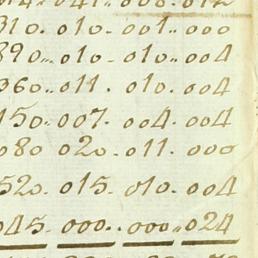 041.. 008.. 012
310. 010. 001.. 000
390... 010.. 010.. 004
360.. 011. 010. 004
150.. 007. 004. 004
080 020. 011. 000
520. 015. 010. 004
045. 000... 000.. 024